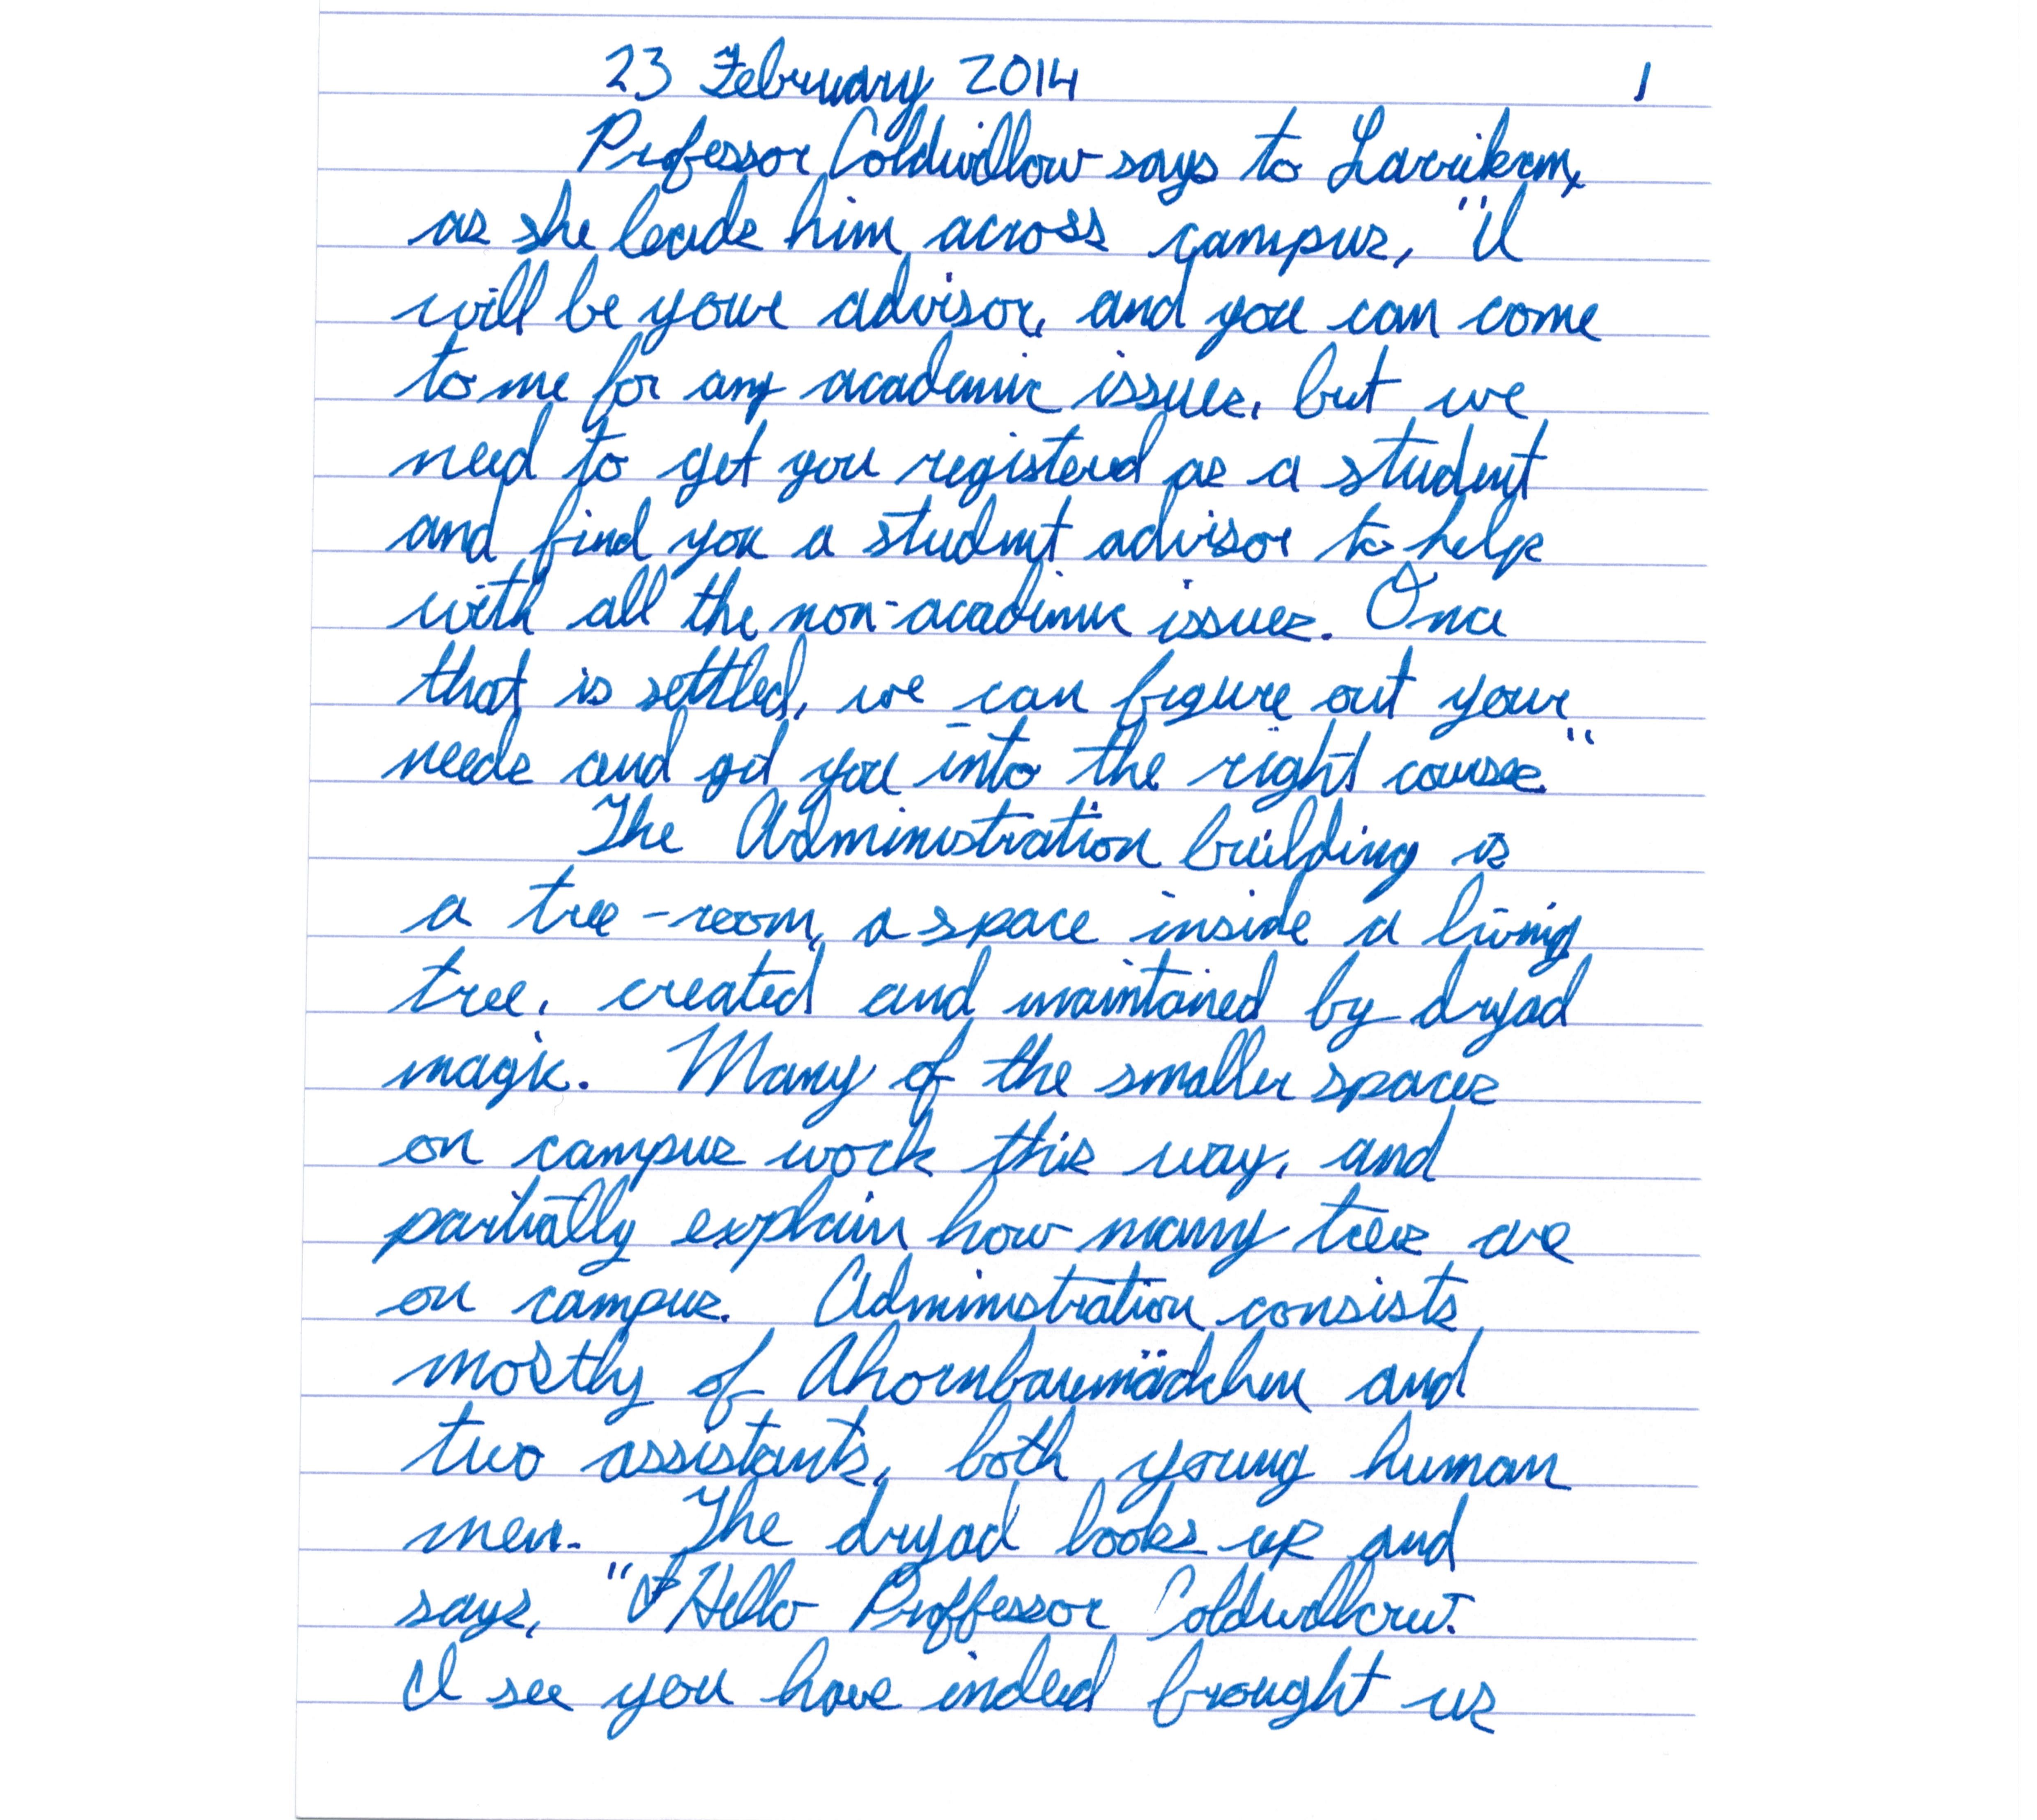 23 February 2014 1
Professor Coldwillow says to Larrikem,
as she leads him across campus, "I
will be your advisor, and you can come
to me for any academic issues, but we
need to get you registered as a student
and find you a student advisor to help
with all the non-academic issues. Once
that is settled, we can figure out your
needs and get you into the right courses."
The Administration building is
a tree-room, a space inside a living
tree, created and maintained by dryad
magic. Many of the smaller spaces
on campus work this way, and
partially explain how many trees are
on campus. Administration consists
mostly of Ahornbaumädchen and
two assistants, both young human
men. The dryad looks up and
says, "Hello Proffessor Coldwillow.
I see you have indeed brought us